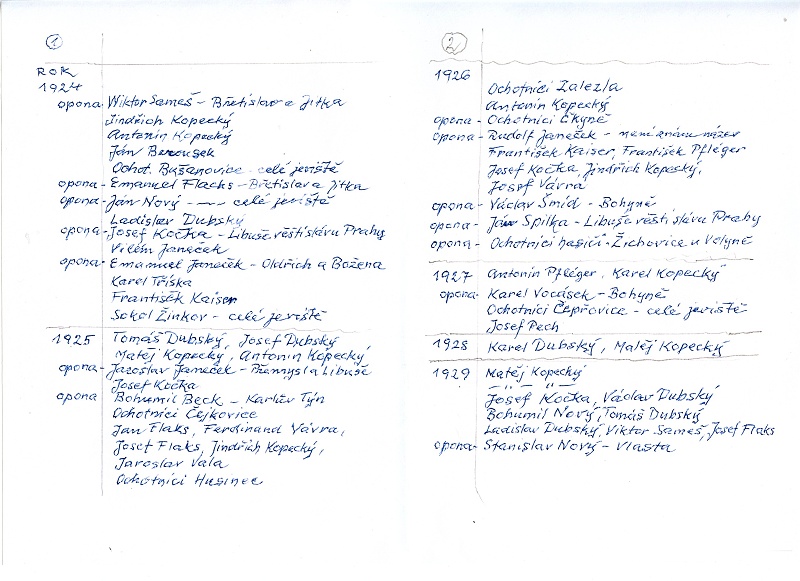 1
ROK
1924
opona - Wiktor Sameš - Břetislav a Jitka
Jindřich Kopecký
Antonín Kopecký
Ján Berousek
Ochot. Bušanovice - celé jeviště
opona - Emanuel Flachs - Břetislav a Jitka
opona - Ján Nový - celé jeviště
Ladislav Dubský
opona - Josef Kočka - Libuše věští slávu Prahy
Vilém Janeček
opona - Emanuel Janeček - Oldřich a Božena
Karel Tříska
František Kaiser
Sokol Žinkov - celé jeviště
1925 Tomáš Dubský, Josef Dubský
Matěj Kopecký, Antonín Kopecký
opona - Jaroslav Janeček - Přemysl a Libuše
Josef Kočka
opona - Bohumil Beck - Karlův Týn
Ochotníci Čejkovice
Jan Flaks, Ferdinand Vávra,
Josef Flaks, Jindřich Kopecký,
Jaroslav Vala
Ochotníci Husinec
2
1926
Ochotníci Zalezla
Antonín Kopecký
opona - Ochotníci Čkyně
opona - Rudolf Janeček - není znám název
František Kaiser, František Pfléger
Josef Kočka, Jindřich Kopecký,
Josef Vávra
opona - Václav Šmíd - Bohyně
opona - Ján Spilka - Libuše věští slávu Prahy
opona - Ochotníci hasiči - Žichovice u Volyně
1927 Antonín Pfléger, Karel Kopecký
opona - Karel Vocásek - Bohyně
Ochotníci Čepřovice - celé jeviště
Josef Pech
1928 Karel Dubský, Matěj Kopecký
1929 Matěj Kopecký
— " — " —
Josef Kočka, Václav Dubský
Bohumil Nový, Tomáš Dubský
Ladislav Dubský, Viktor Sameš, Josef Flaks
opona - Stanislav Nový - Vlasta